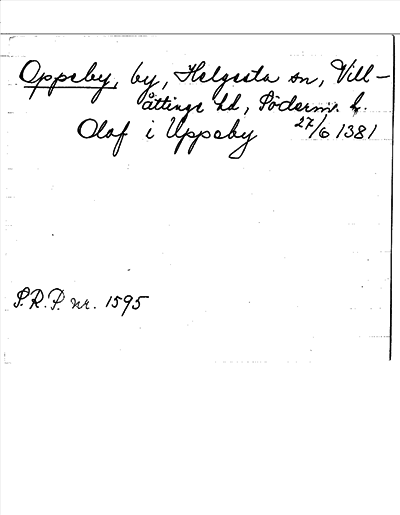 Oppeby, by, Helgesta sn, Vill-
åttinge hd, Söderm. l.
Olof i Uppeby 27/6 1381
S.R.P. nr. 1595